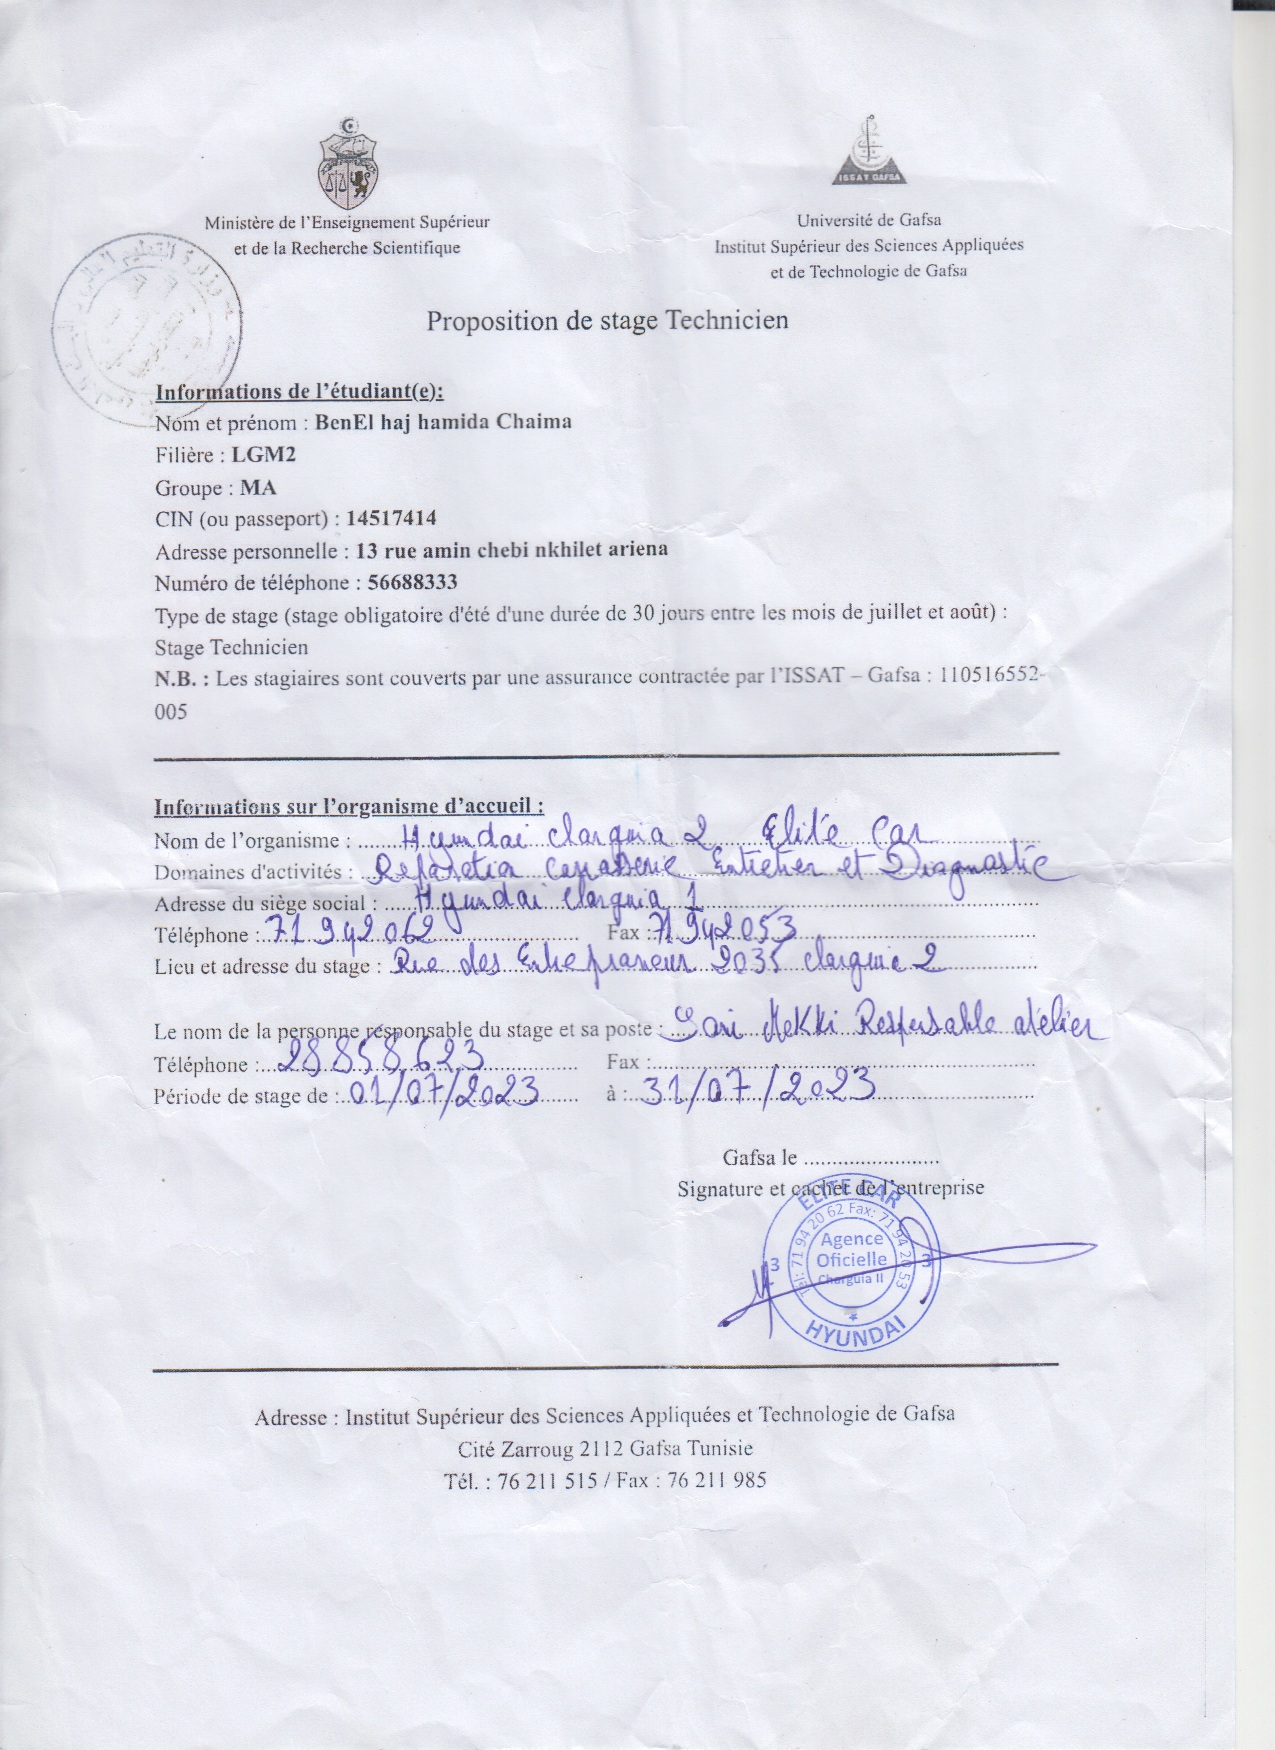 ISSAT GAFSA
Ministère de l'Enseignement Supérieur
et de la Recherche Scientifique
Université de Gafsa
Institut Supérieur des Sciences Appliquées
et de Technologie de Gafsa
Proposition de stage Technicien
Informations de l'étudiant(e):
Nom et prénom : BenEl haj hamida Chaima
Filière : LGM2
Groupe : MA
CIN (ou passeport) : 14517414
Adresse personnelle : 13 rue amin chebi nkhilet ariena
Numéro de téléphone : 56688333
Type de stage (stage obligatoire d'été d'une durée de 30 jours entre les mois de juillet et août) :
Stage Technicien
N.B. : Les stagiaires sont couverts par une assurance contractée par l'ISSAT – Gafsa : 110516552-
005
Informations sur l'organisme d'accueil :
Nom de l'organisme : Hyundai charguia 2 Elite Car
Domaines d'activités : Reparation carrosserie Entretien et Diagnostic
Adresse du siège social : Hyundai charguia 1
Téléphone : 71 942 062 Fax : 71 942 053
Lieu et adresse du stage : Rue des Entrepreneur 2035 charguia 2
Le nom de la personne responsable du stage et sa poste : Mekki Responsable atelier
Téléphone : 28 858 623 Fax :
Période de stage de : 01/07/2023 à : 31/07/2023
Gafsa le ........................
Signature et cachet de l'entreprise
ELITE CAR
Tél: 71 94 20 62 Fax: 71 94 20 53
3 Agence 3
Oficielle
Charguia II
HYUNDAI
Adresse : Institut Supérieur des Sciences Appliquées et Technologie de Gafsa
Cité Zarroug 2112 Gafsa Tunisie
Tél. : 76 211 515 / Fax : 76 211 985